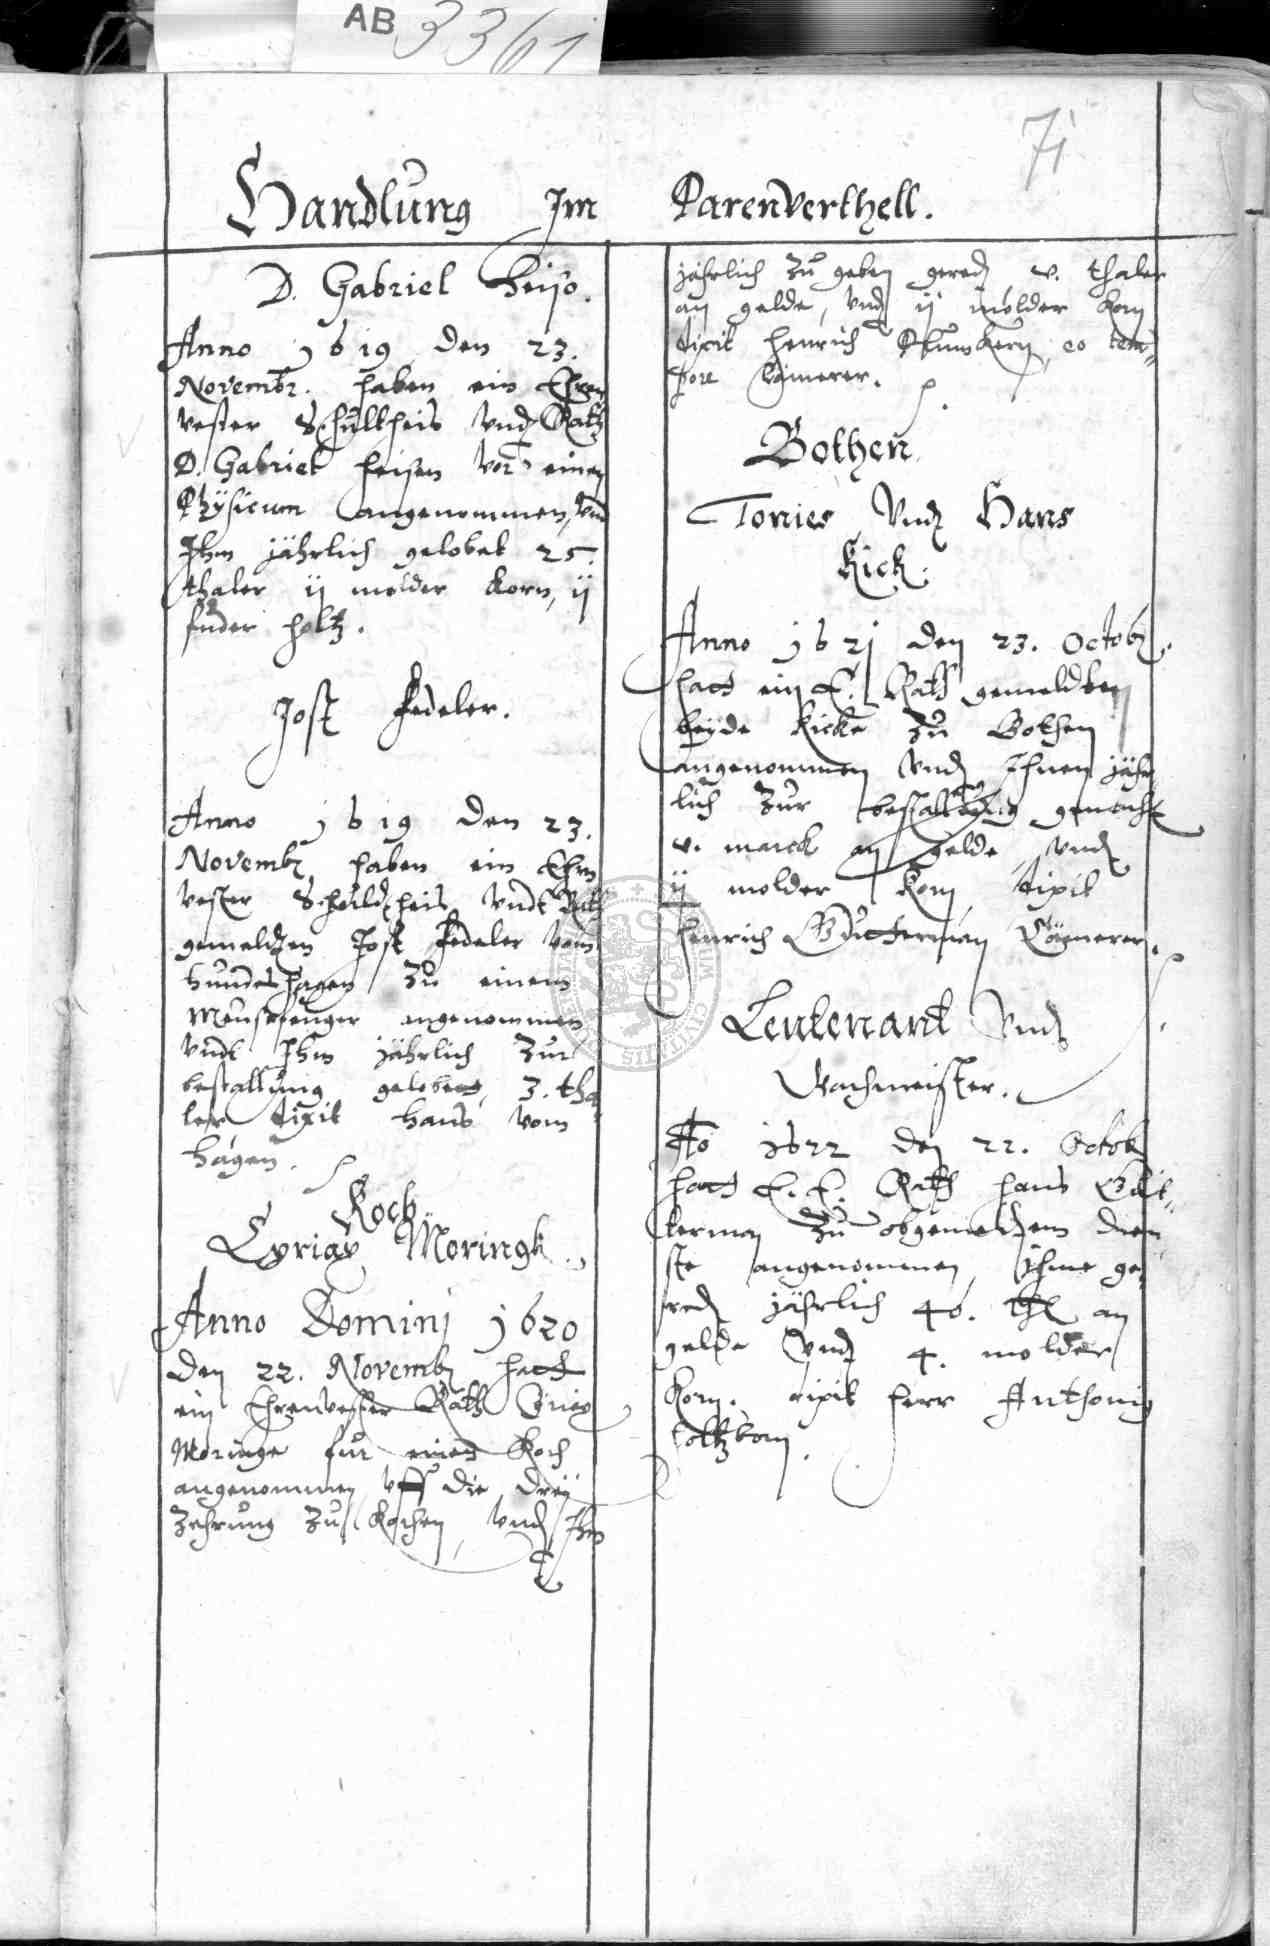 AB 3361
71
Handlung Im Parenverthell.
D. Gabriel Heiso.
Anno 1619 den 23.
Novembr. haben ein Ehren
vester Schultheis vnd Rath
D. Gabriel heisen vor einen
Physicum angenommen, vnd
Ihm jährlich gelobet 25.
thaler ij molder korn, ij
fuder holtz.
Jost Fedeler.
Anno 1619 den 23.
Novembr haben ein Ehrn
vester Schuldtheis vndt Rath
gemeldten Jost Fedeler vom
hundeshagen zu einem
Meusefenger angenommen
vndt Ihm jährlich zur
bestallung gelobett, 3. tha
ler dixit hans vom
hagen.
Koch
Cyriax Möringk.
Anno Dominj 1620
den 22. Novembr hatt
ein Ehrenvester Rath Ciriax
Moringe fur einen Koch
angenommen vff die dreÿ
Zehrung zu kochen, vnd Ihm
jährlich zu geben gered v. thaler
an gelde, vnd ij molder korn
dixit Henrich eo tem-
pore Cämerer.
Bothen
Tonies Vnd Hans
Kick.
Anno 1621 den 23. Octobr.
hatt ein E. Rath gemeldten
beÿde Kicke zu Bothen
angenommen vnd Ihnen jähr
lich zur bestallung gemacht
v. marck an gelde vnd
ij molder korn, dixit
Henrich Gütterman Cämerer.
Leutenant Vnd
Wachmeister.
Ao 1622 den 22. Octob
hatt E. E. Rath hans Güt-
terman zu obgemeltem dien
ste angenommen, ihme ge
red jährlich 40. thl an
gelde vnd 4. molder
korn. dixit herr Anthonig
holtzborn.